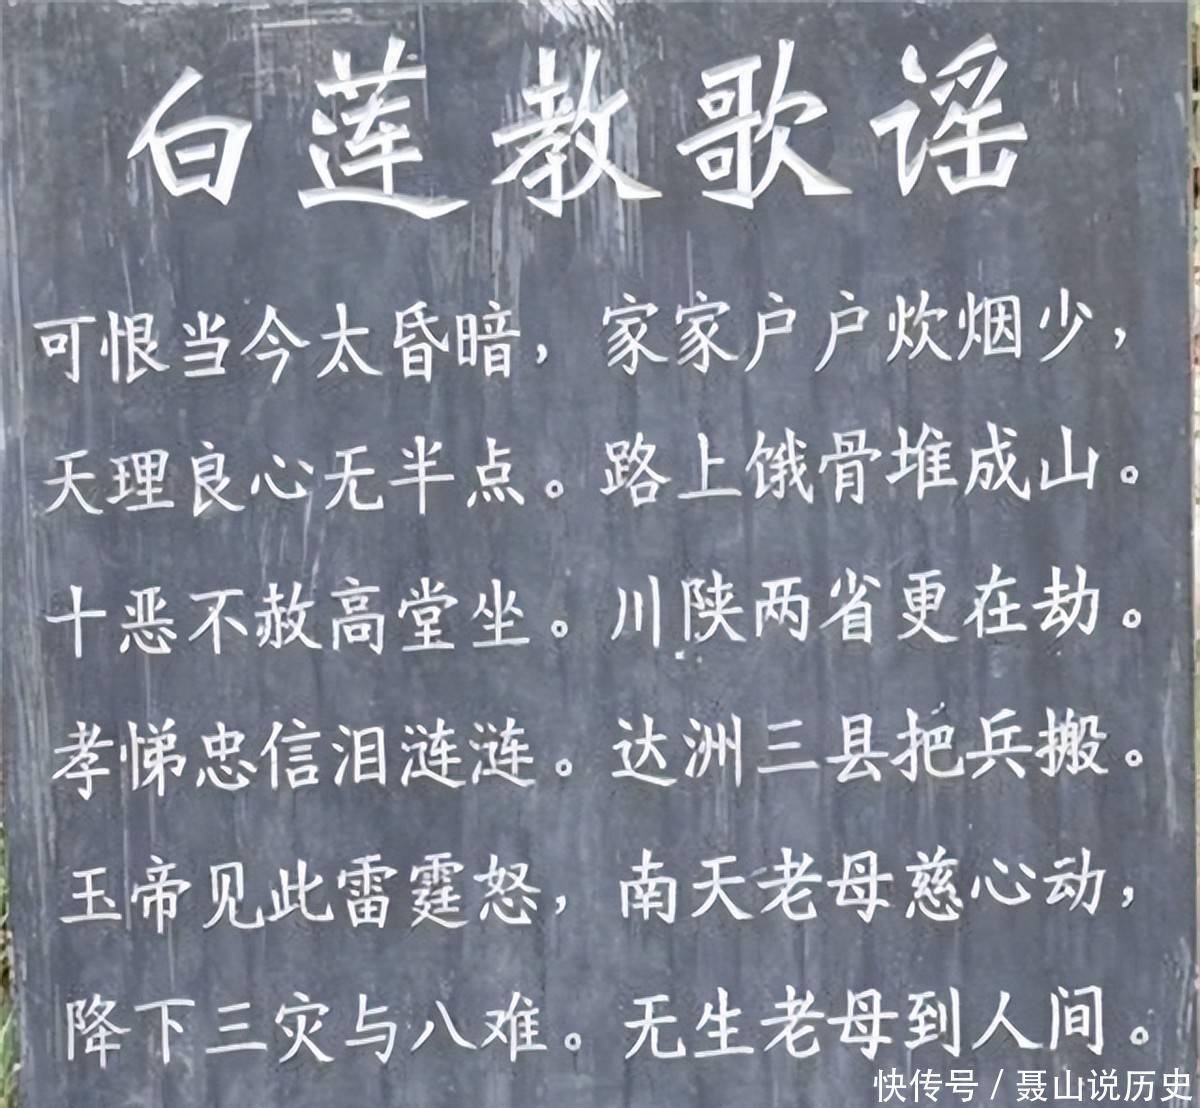 白莲教歌谣
可恨当今太昏暗，家家户户炊烟少，
天理良心无半点。路上饿骨堆成山。
十恶不赦高堂坐。川陕两省更在劫。
孝悌忠信泪涟涟。达洲三县把兵搬。
玉帝见此雷霆怒，南天老母慈心动，
降下三灾与八难。无生老母到人间。
快传号 / 聂山说历史